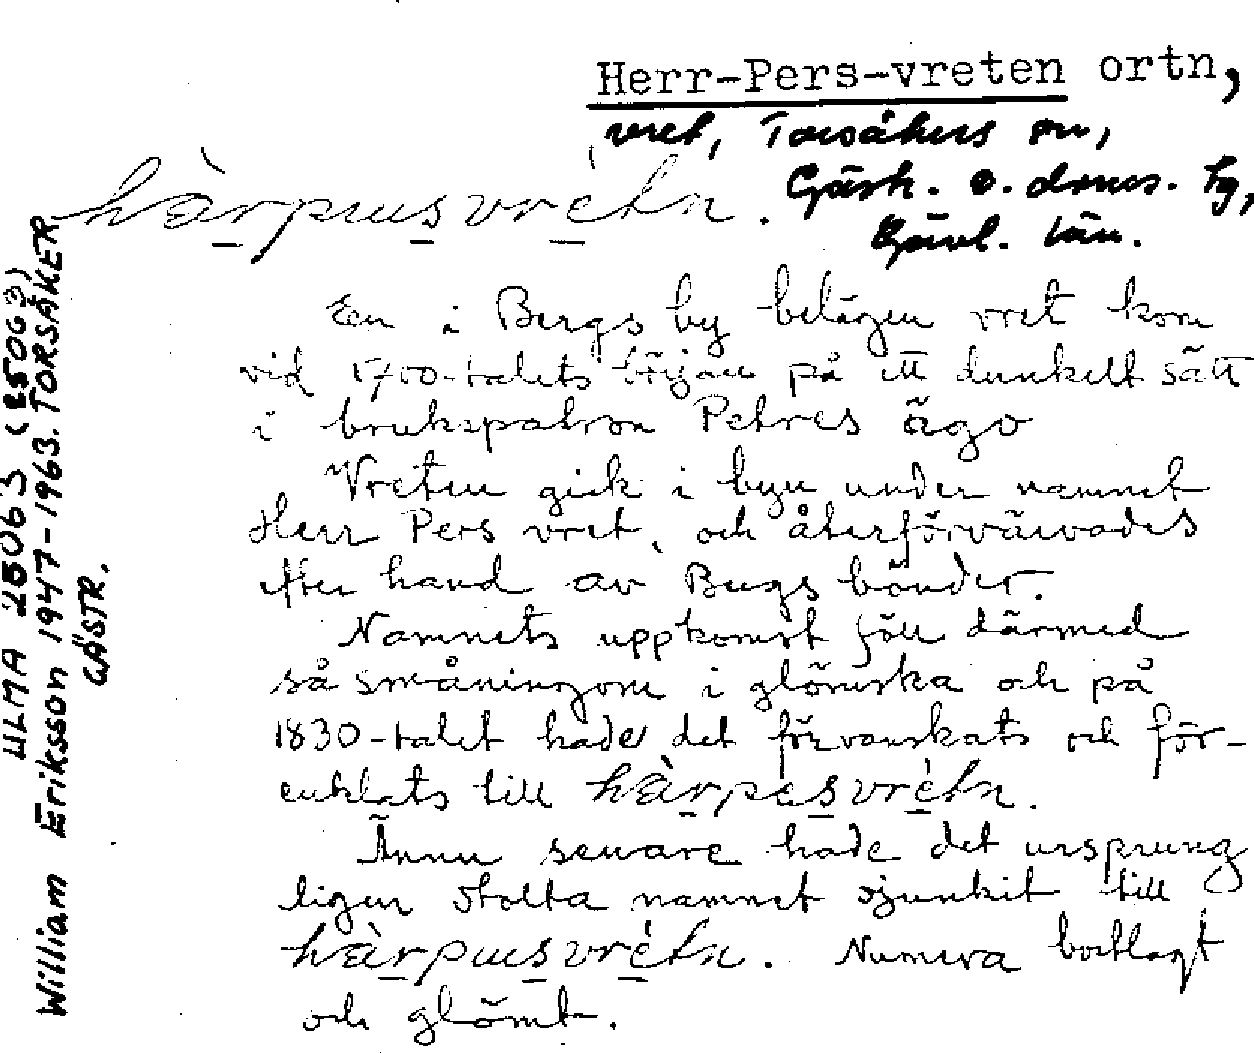 Herr-Pers-vreten ortn,
vret, Torsåkers sn,
Gästr. ö. doms. hg,
Gävl. län.
hàrpusvrétn.
En i Bergs by belägen vret kom
vid 1700-talets början på ett dunkelt sätt
i brukspatron Petres ägo
Vreten gick i byn under namnet
Herr Pers vret, och återförvärvades
efter hand av Bergs bönder.
Namnets uppkomst föll därmed
så småningom i glömska och på
1830-talet hade det förvanskats och för-
enklats till hàrpasvrétn.
Ännu senare hade det ursprung
ligen stolta namnet sjunkit till
hàrpusvrétn. Numera bortlagt
och glömt.
ULMA 25063 (25063)
William Eriksson 1947-1963. TORSÅKER
GÄSTR.